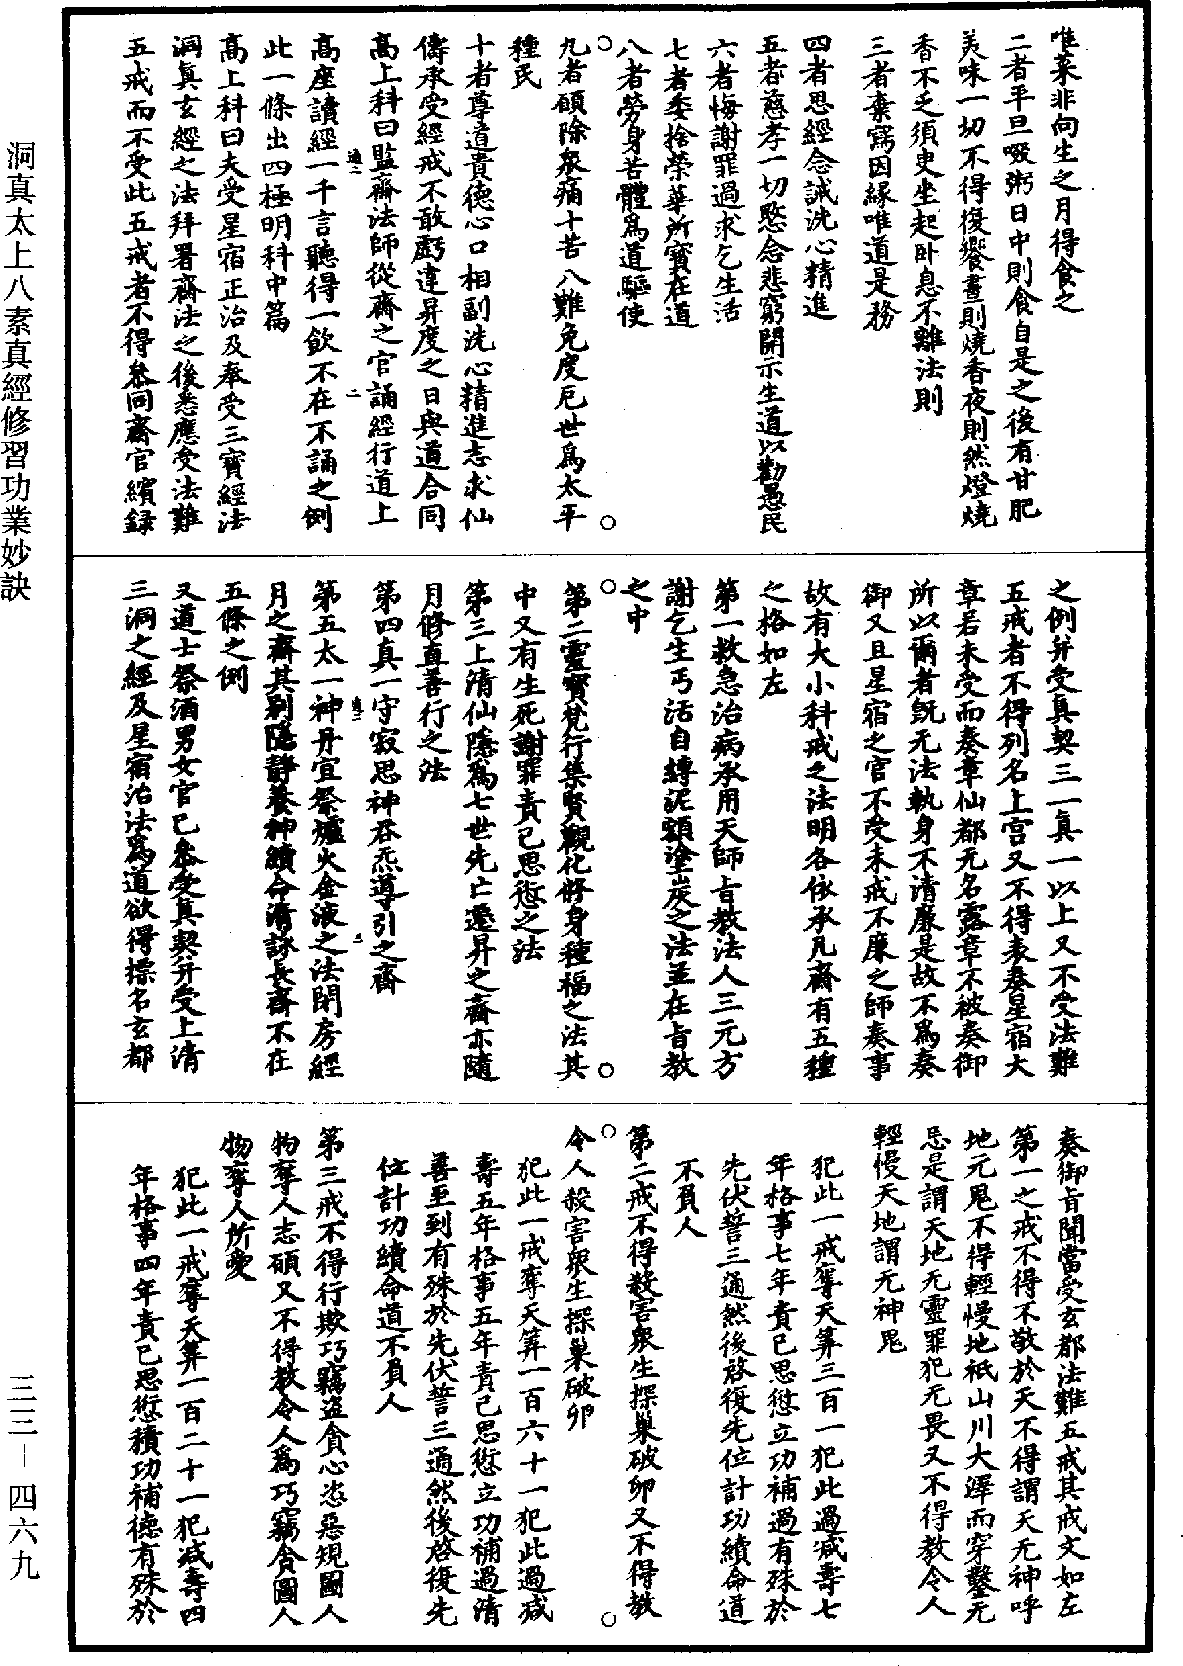 唯菜非向生之月得食之
二者平旦啜粥日中則食自是之後有甘肥
美味一切不得復饗晝則燒香夜則然燈燒
香不乏須臾坐起卧息不離法則
三者棄寫因緣唯道是務
四者思經念誡洗心精進
五者慈孝一切愍念悲窮開示生道以勸愚民
六者悔謝罪過求乞生活
七者委捨榮華所寳在道
八者勞身苦體爲道驅使
九者願除衆痛十苦八難免度厄世爲太平
種民
十者尊道貴德心口相副洗心精進志求仙
儔承受經戒不敢虧違昇度之日與道合同
高上科曰監齋法師從齋之官誦經行道上
高座讀經一千言聽得一飲不在不誦之例
此一條出四極明科中篇
高上科曰夫受星宿正治及奉受三寳經法
洞真玄經之法拜署齋法之後悉應受法難
五戒而不受此五戒者不得叅同齋官繽録
之例并受真契三一真一以上又不受法難
五戒者不得列名上宫又不得表奏星宿大
章若未受而奏章仙都无名露章不被奏御
所以爾者旣无法執身不清廉是故不爲奏
御又且星宿之官不受未戒不廉之師奏事
故有大小科戒之法明各依承凡齋有五種
之格如左
第一救急治病承用天師旨教法人三元方
謝乞生丐活自縛泥額塗炭之法並在旨教
之中
第二靈寳梵行集賢觀化修身種福之法其
中又有生死謝罪責己思愆之法
第三上清仙隱爲七世先亡遷昇之齋亦隨
月修直善行之法
第四真一守寂思神吞炁導引之齋
第五太一神丹宜祭爐火金液之法閉房經
月之齋其别隱靜養神續命清詠長齋不在
五條之例
又道士祭酒男女官已叅受真契并受上清
三洞之經及星宿治法爲道欲得摽名玄都
奏御旨聞當受玄都法難五戒其戒文如左
第一之戒不得不敬於天不得謂天无神呼
地元鬼不得輕慢地祇山川大澤而穿鑿无
忌是謂天地无靈罪犯无畏又不得教令人
輕慢天地謂无神鬼
犯此一戒奪天筭三百一犯此過減壽七
年格事七年責已思愆立功補過有殊於
先伏誓三通然後啓復先位計功續命道
不負人
第二戒不得殺害衆生探巢破卵又不得教
令人殺害衆生探巢破卵
犯此一戒奪天筭一百六十一犯此過減
壽五年格事五年責己思愆立功補過清
善至到有殊於先伏誓三通然後啓復先
位計功續命道不負人
第三戒不得行欺巧竊盗貪心恣惡規圖人
物奪人志願又不得教令人爲巧竊貪圖人
物奪人所愛
犯此一戒奪天筭一百二十一犯減壽四
年格事四年責已思愆積功補德有殊於
洞真太上八素真經修習功業妙訣
三三—四六九